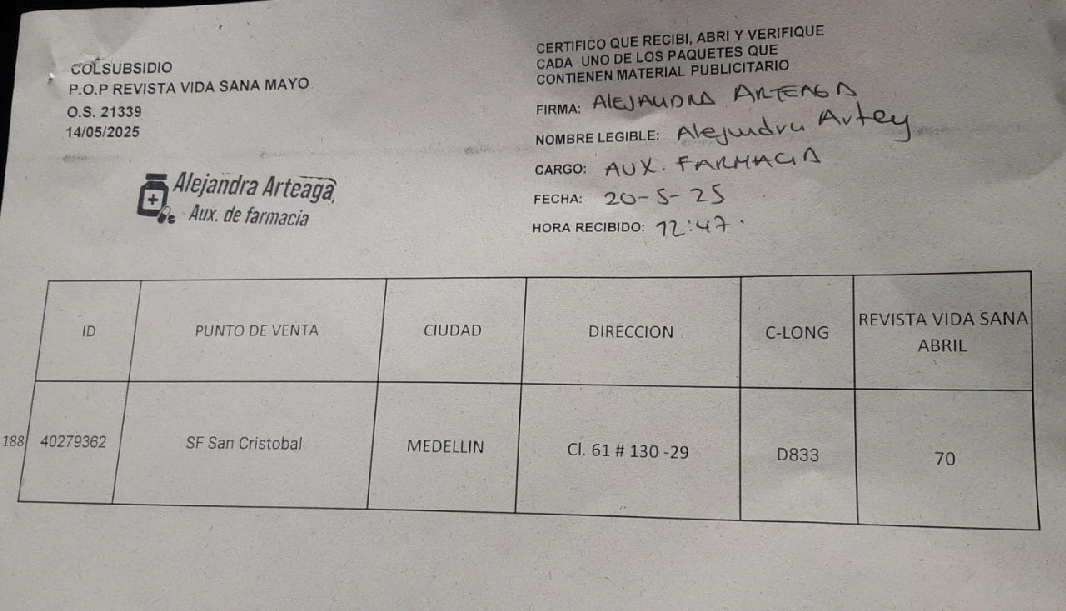 COLSUBSIDIO
P.O.P REVISTA VIDA SANA MAYO
O.S. 21339
14/05/2025
Alejandra Arteaga
Aux. de farmacia
CERTIFICO QUE RECIBI, ABRI Y VERIFIQUE
CADA UNO DE LOS PAQUETES QUE
CONTIENEN MATERIAL PUBLICITARIO
FIRMA: ALEJANDRA ARTEAGA
NOMBRE LEGIBLE: Alejandra Artey
CARGO: AUX. FARMACIA
FECHA: 20-5-25
HORA RECIBIDO: 12:47
ID PUNTO DE VENTA CIUDAD DIRECCION C-LONG REVISTA VIDA SANA
ABRIL
188 40279362 SF San Cristobal MEDELLIN Cl. 61 # 130 -29 D833 70